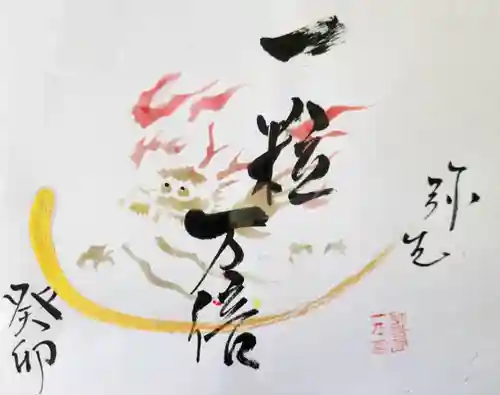 一粒
万倍
弥生
癸卯